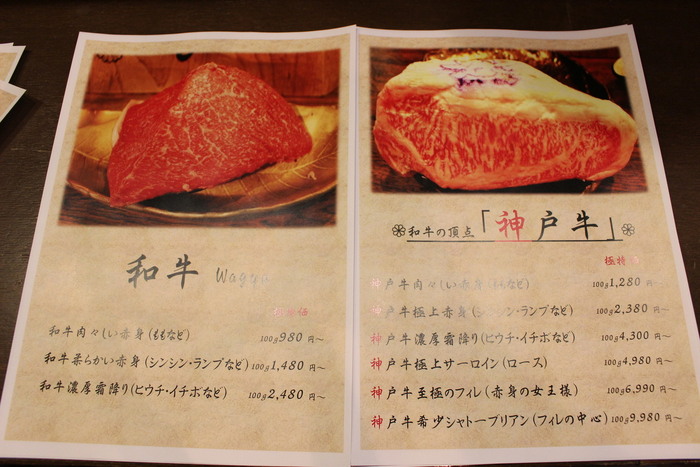 和牛 Wagyu
和牛肉々しい赤身(ももなど) 100g980円～
和牛柔らかい赤身(シンシン・ランプなど) 100g1,480円～
和牛濃厚霜降り(ヒウチ・イチボなど) 100g2,480円～
和牛の頂点「神戸牛」
神戸牛肉々しい赤身(ももなど) 100g1,280円～
神戸牛極上赤身(シンシン・ランプなど) 100g2,380円～
神戸牛濃厚霜降り(ヒウチ・イチボなど) 100g4,300円～
神戸牛極上サーロイン(ロース) 100g4,980円～
神戸牛至極のフィレ(赤身の女王様) 100g6,990円～
神戸牛希少シャトーブリアン(フィレの中心) 100g9,980円～